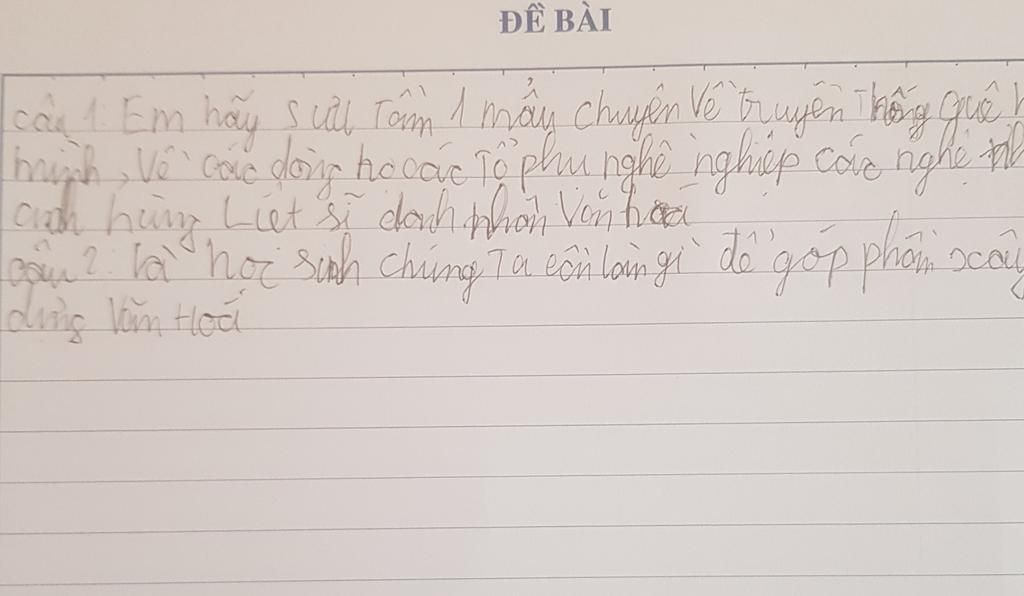 ĐỀ BÀI
câu 1: Em hãy sưu Tầm 1 mẩu chuyện về truyền Thống quê
mình, về các dòng họ các Tổ phụ nghề nghiệp các nghề
anh hùng Liệt sĩ danh nhân văn hoá
câu 2: là học sinh chúng Ta cần làm gì để góp phần xây
dựng văn Hoá